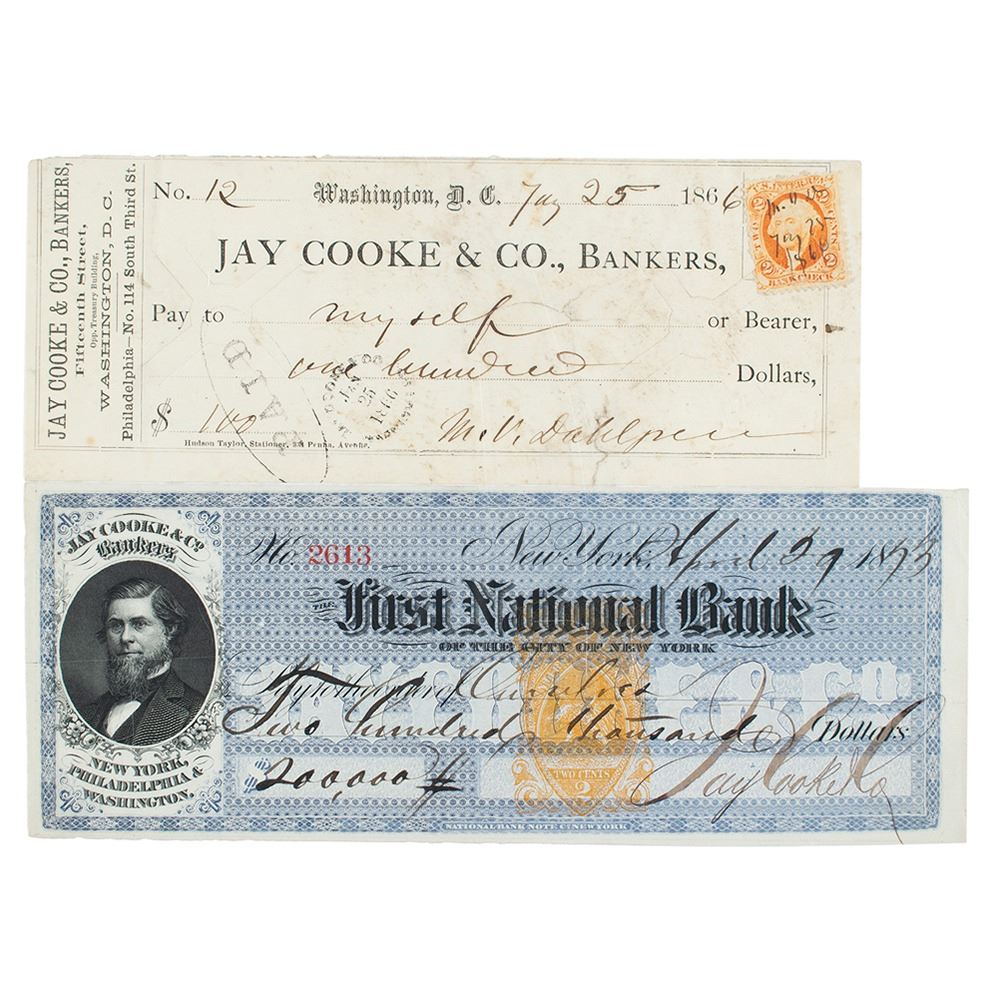 JAY COOKE & CO., BANKERS,
Fifteenth Street,
Opp. Treasury Building,
WASHINGTON, D. C.
Philadelphia—No. 114 South Third St.
No. 12 Washington, D. C. Jay 25 1866
JAY COOKE & CO., BANKERS,
Pay to myself or Bearer,
one hundred Dollars,
$ 100
Hudson Taylor, Stationer, 334 Penna. Avenue.
U.S. INTER. REV.
TWO CENTS
2 2
BANK CHECK
Jay 25
1866
PAID
JAN
25
1866
JAY COOKE & CO.
Bankers
NEW YORK,
PHILADELPHIA &
WASHINGTON.
No. 2613 New York, April 29 1873
THE First National Bank
OF THE CITY OF NEW YORK
Pay to the order of Ourselves
Two hundred thousand Dollars
$200,000
Jay Cooke & Co
TWO CENTS
2
NATIONAL BANK NOTE CO. NEW YORK